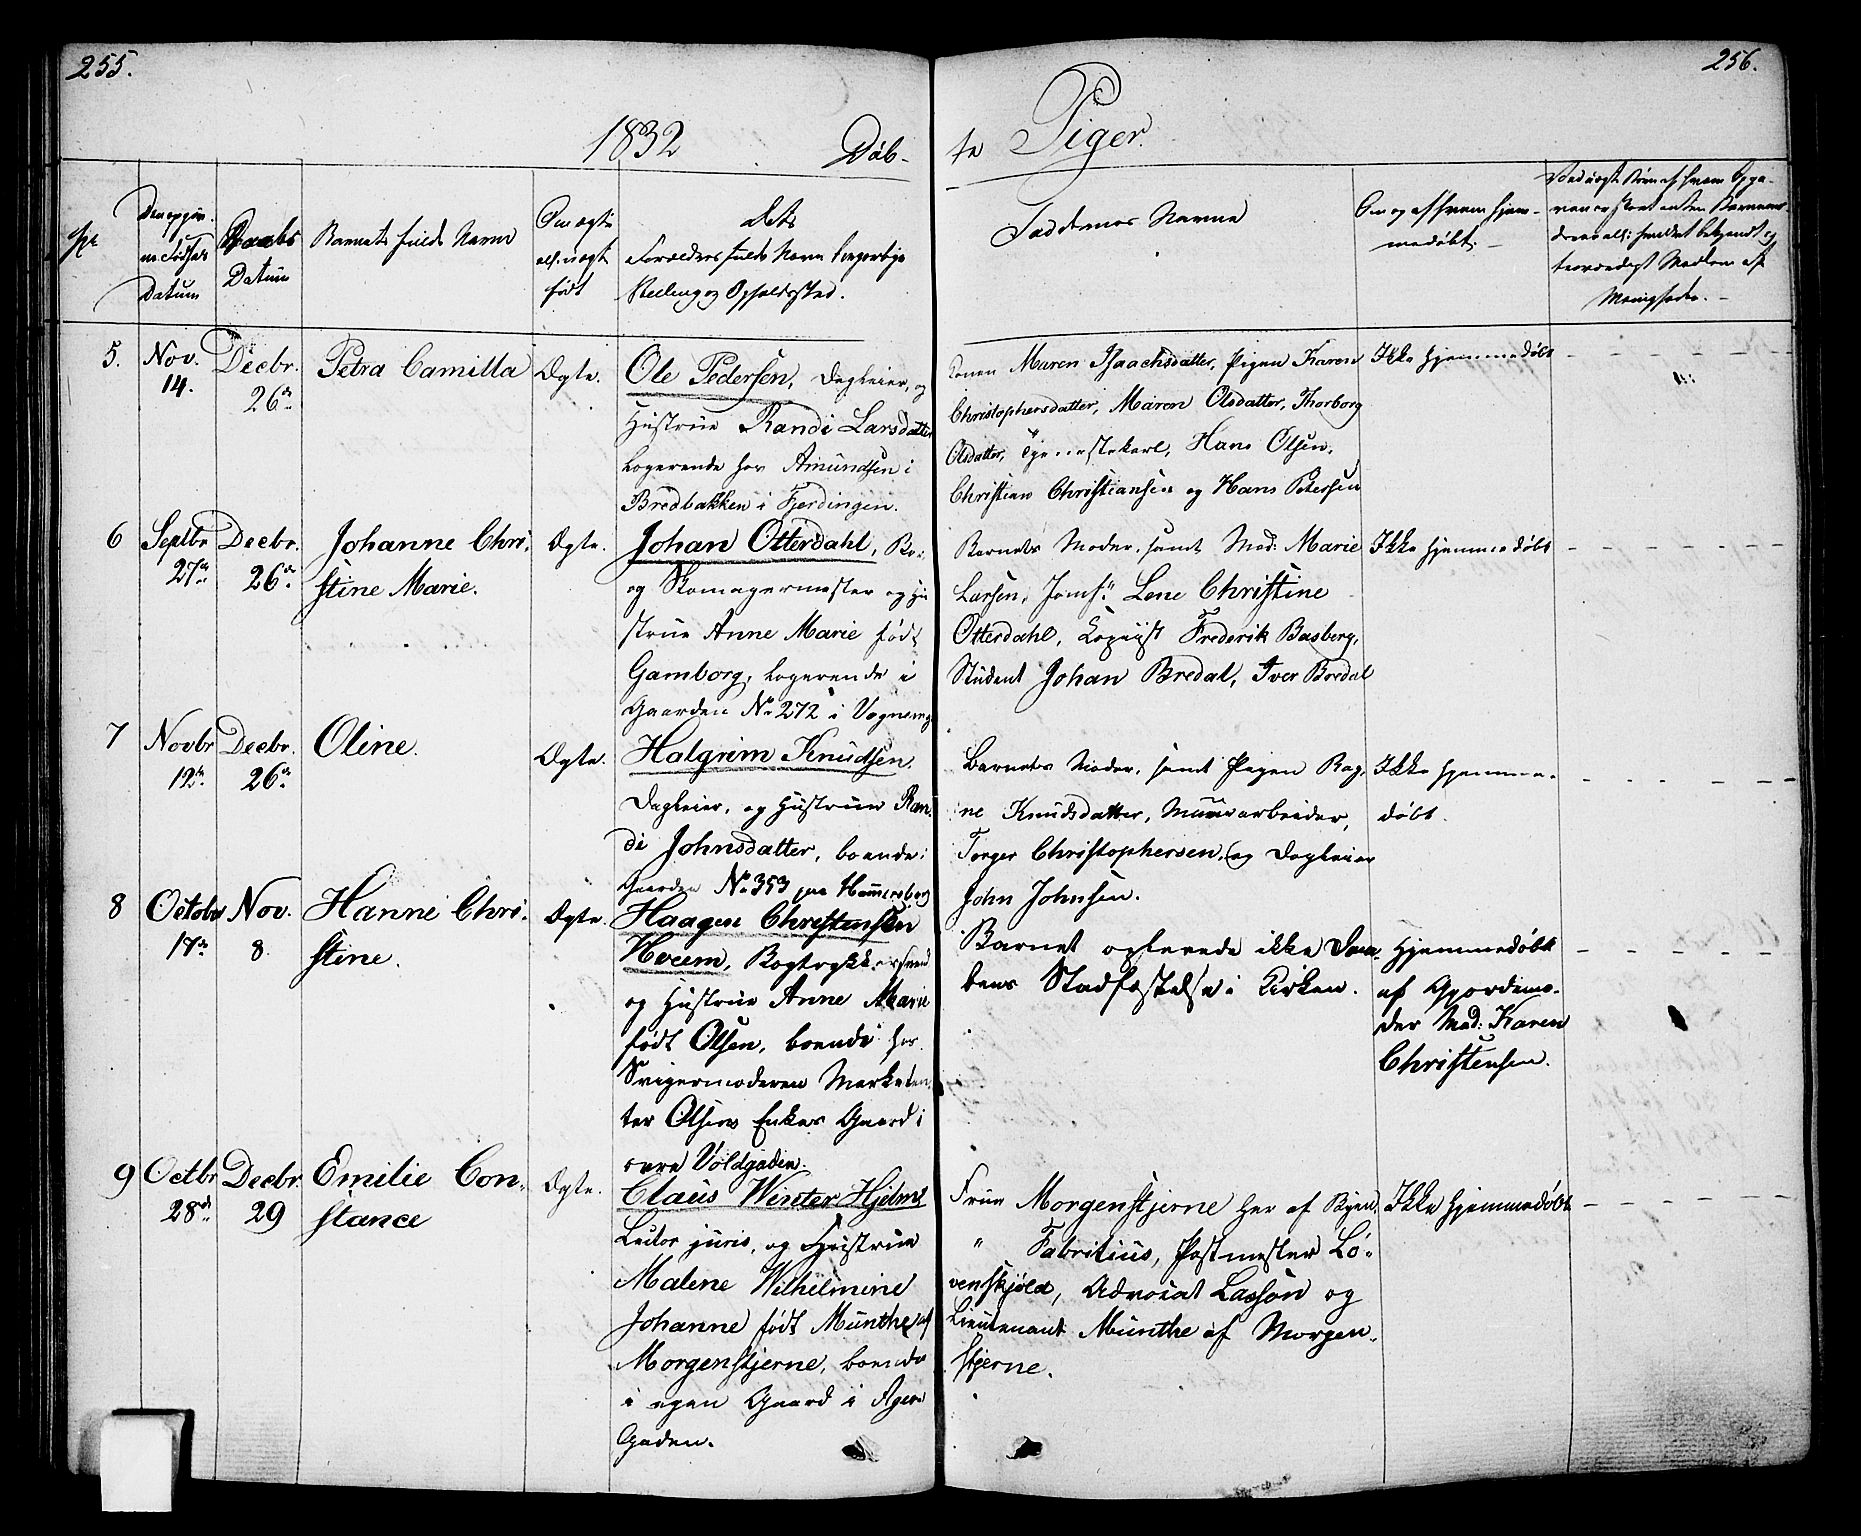 255.
256.
1832 Døb-
te Piger.
No
Den opgiv-
ne Fødsels
Datum
Daabs
Datum
Barnets fulde Navn
Om ægte
ell. uægte
født
dets
Forældres fulde Navn borgerlige
Stilling og Opholdssted.
Faddernes Navne
Om og af hvem hjem-
medøbt.
Menigheden.
5.
Nov.
14.
Decbr.
26de
Petra Camilla
Ægte.
Ole Pedersen, Dagleier, og
Hustrue Randi Larsdatter
logerende hos Amundsen i
Bredbakken i Fjerdingen.
Konen Maren Isaachsdatter, Pigen Karen
Christophersdatter, Maren Olsdatter, Thorborg
Olsdatter, Tjenestekarl, Hans Olsen,
Christian Christiansen og Hans Petersen
Ikke hjemmedøbt
6
Septbr
27de
Decbr.
26de
Johanne Chri-
stine Marie.
Ægte.
Johan Otterdahl, Bor-
og Skomagermester og Hu
strue Anne Marie født
Gamborg, logerende i
Gaarden No 272 i Vognmg
Barnets Moder, samt Mad: Marie
Larsen, Jomf: Lene Christine
Otterdahl, Copiist Frederik Basberg,
Student Johan Bredal, Iver Bredal
Ikke hjemmedøbt
7
Novbr
12te
Decbr.
26de
Oline.
Ægte.
Halgrim Knudsen,
Dagleier, og Hustrue Ran-
di Johnsdatter, boende i
Gaarden No 353 paa Hammersborg
Barnets Moder, samt Pigen Rag-
ne Knudsdatter, Muurarbeider,
Torger Christophersen, og Dagleier
John Johnsen.
Ikke hjemme-
døbt.
8
October
17de
Nov.
8.
Hanne Chri-
stine.
Ægte.
Haagen Christensen
Hveem, Bogtrykkersvend
og Hustrue Anne Marie
født Olsen, boende hos
Svigermoderen Marketen-
ter Olsens Enkes Gaard i
øvre Voldgaden.
Barnet oplevede ikke Daa-
bens Stadfæstelse i Kirken.
Hjemmedøbt
af Gjordemo-
der Mad: Karen
Christensen.
9
Octbr
28de
Decbr.
29
Emilie Con-
stance
Ægte.
Claus Winter Hjelm
Lector juris, og Hustrue
Malene Wilhelmine
Johanne født Munthe af
Morgenstjerne, boende
i egen Gaard i Agers
Gaden.
Frue Morgenstjerne her af Byen,
" Fabritius, Postmester Lö-
venskjold, Advocat Lasson og
Lieutenant Munthe af Morgen-
stjerne.
Ikke hjemmedøbt